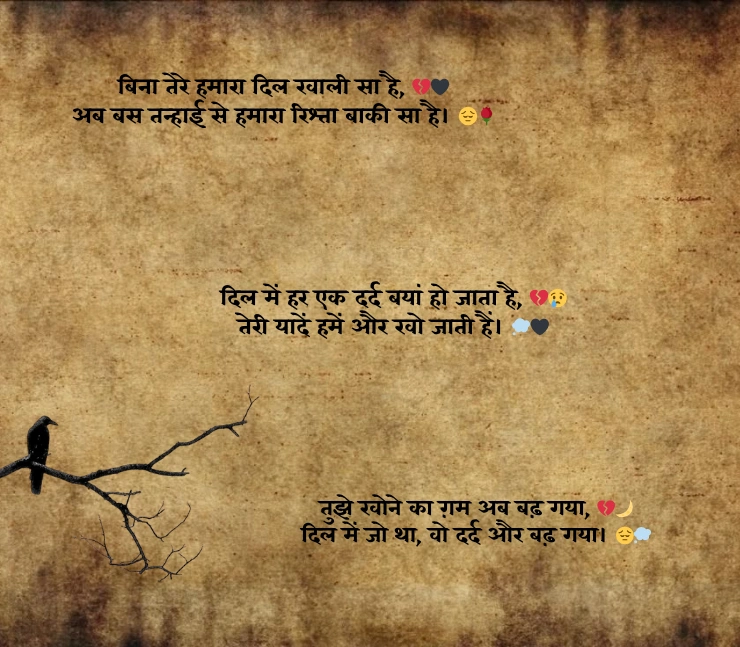 बिना तेरे हमारा दिल खाली सा है, 💔🖤
अब बस तन्हाई से हमारा रिश्ता बाकी सा है। 😔🌹
दिल में हर एक दर्द बयां हो जाता है, 💔😢
तेरी यादें हमें और खो जाती हैं। 💭🖤
तुझे खोने का ग़म अब बढ़ गया, 💔🌙
दिल में जो था, वो दर्द और बढ़ गया। 😔💭